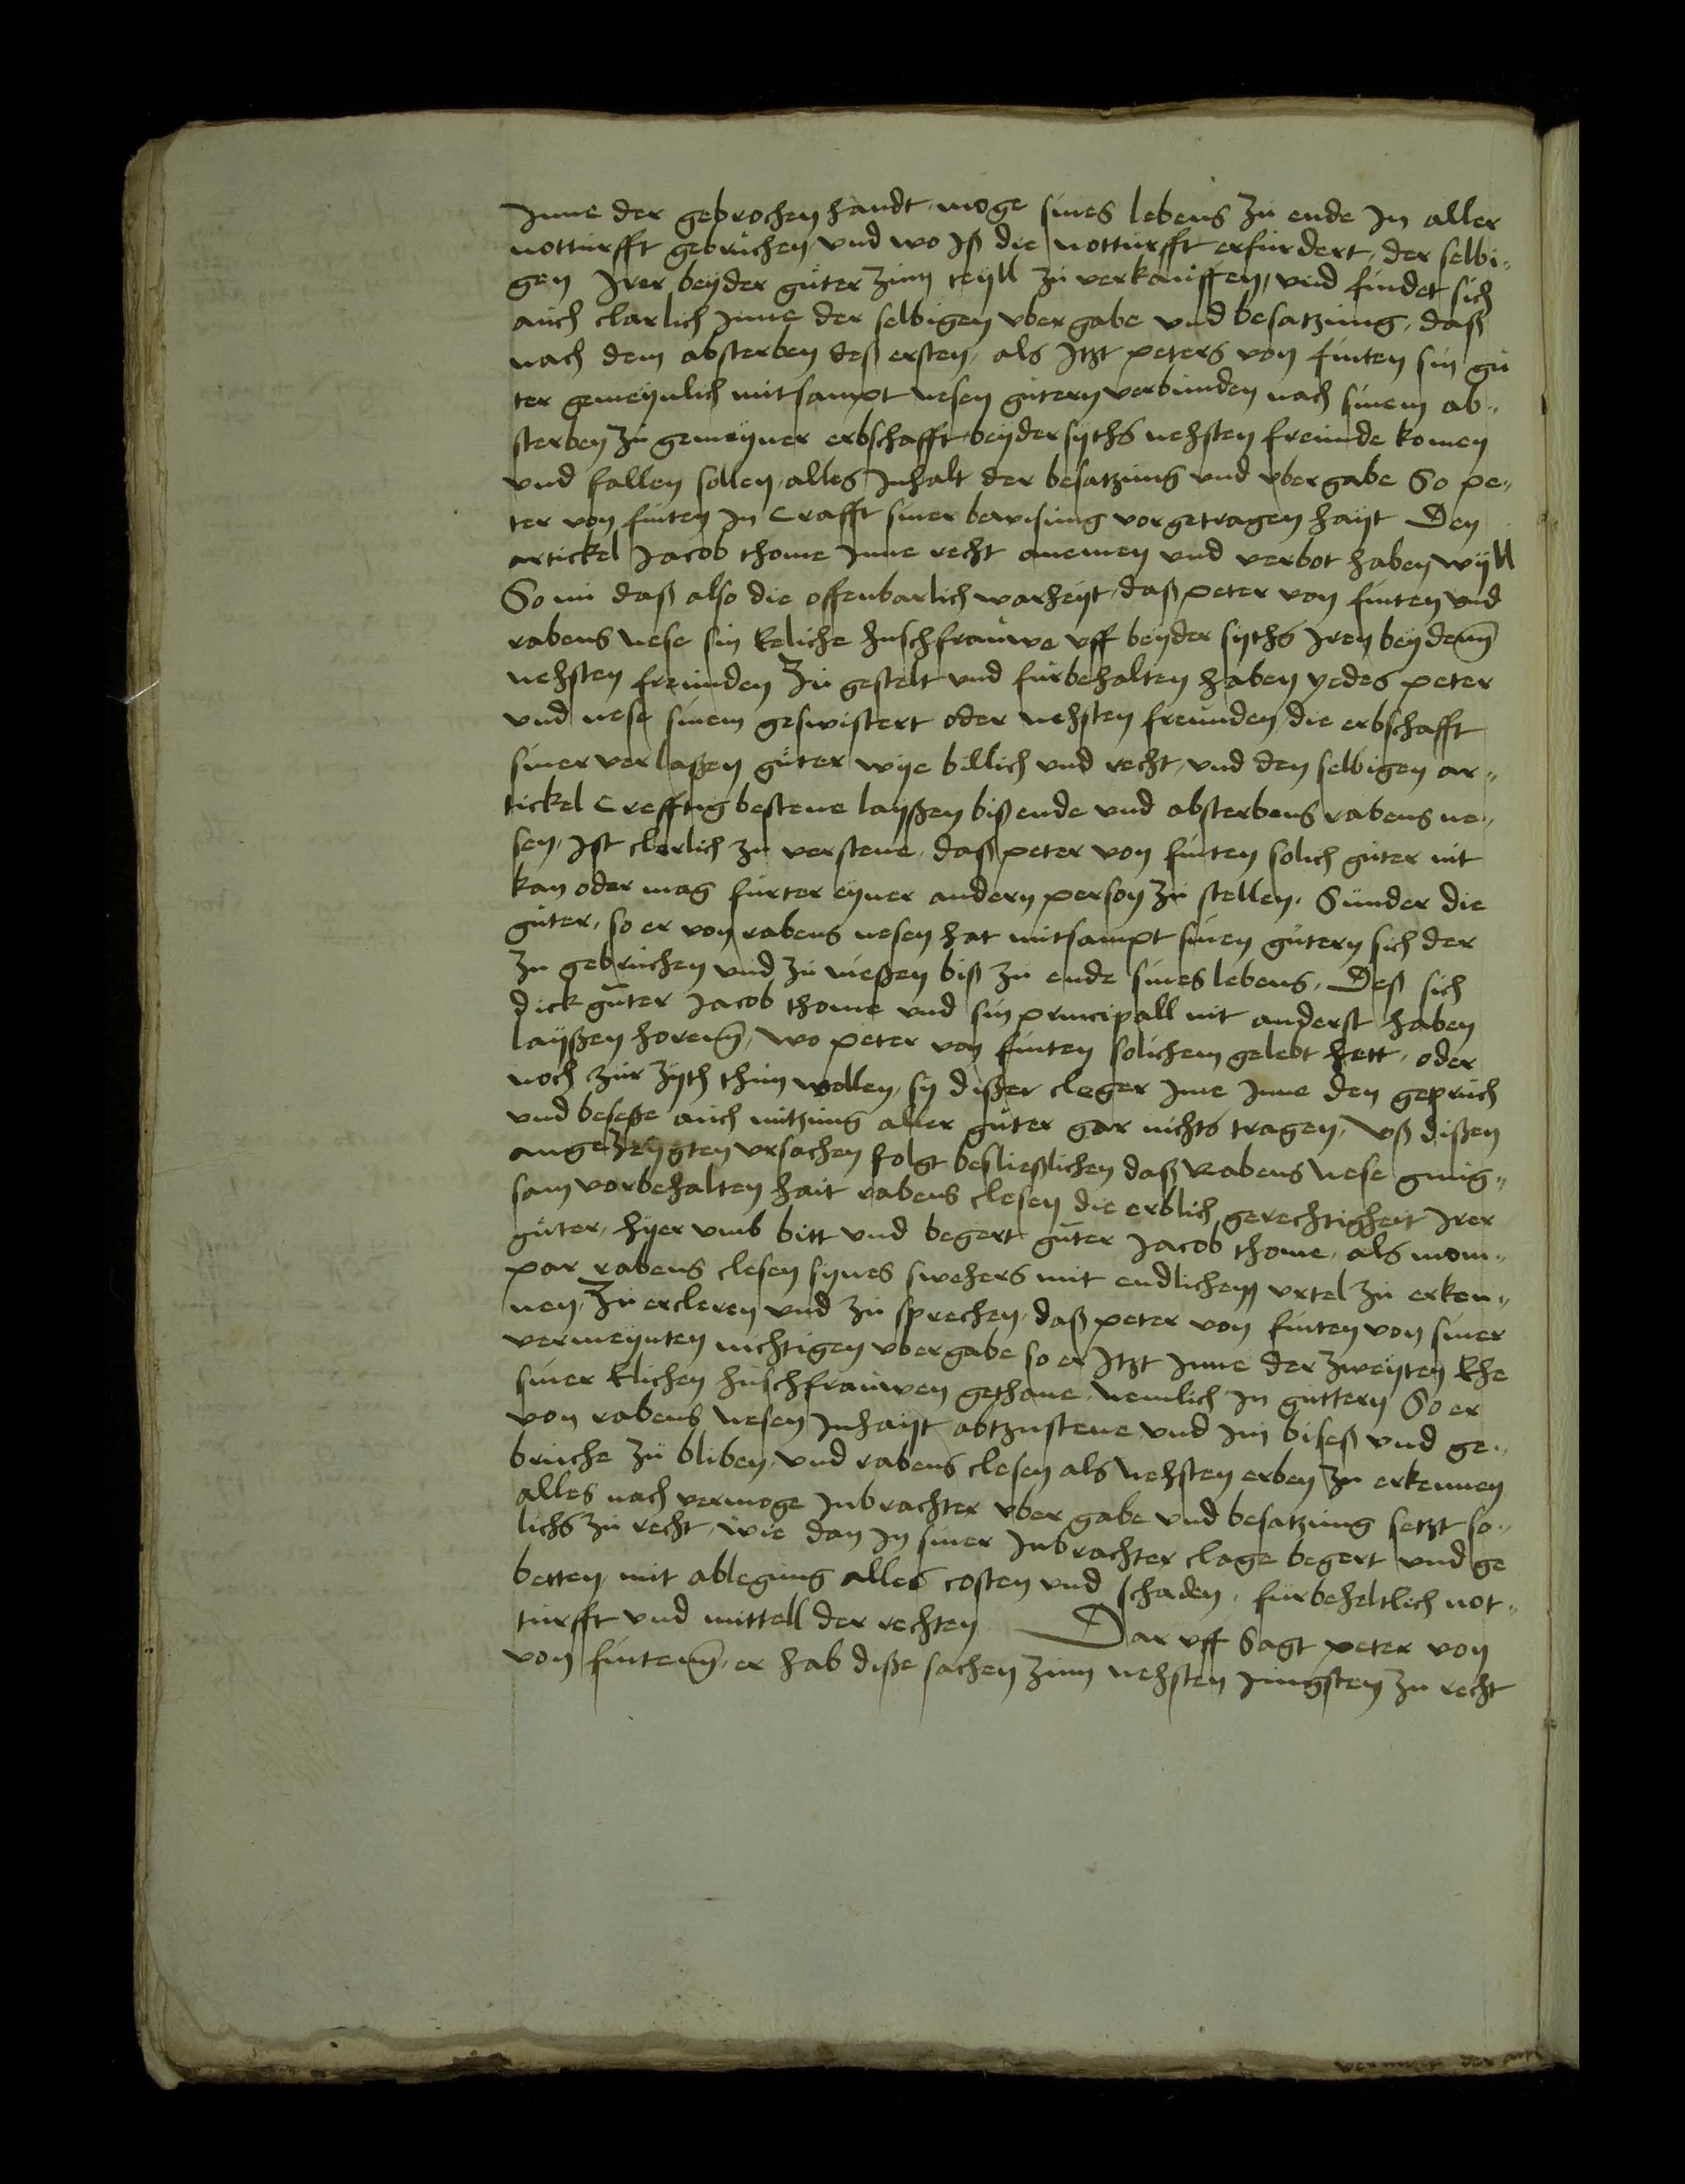 Inne der geprochen handt moge sines lebens zu ende In aller
notturfft gebruchen und wo Iß die notturfft erfurdert, der selbi„
gen Irer beyder guter zum teyll zu verkauffen, und findet sich
auch clarlich Inne der selbigen ubergabe und besatzung, daß
nach dem absterben deß ersten, als Itzt peters von finten sin gu
ter gemeynlich mitsampt nesen gutern verbunden nach sinem ab„
sterben zu gemeyner erbschafft beydersyths nehsten freunde komen
und fallen sollen, alles Inhalt der besatzung und ubergabe So pe„
ter von finten In Crafft siner bewisung vorgetragen hayt Den
artickel Jacob thome Inne recht annemen und verbot haben wyll
So nu daß also die offenbarlich warheyt, daß peter von finten und
rabens nese sin Eeliche huschfrauwe uff beyder syths Iren beydenn
nehsten freunden Zu gestelt und furbehalten haben yedes peter
und nese sinem geswistert oder nehsten freunden die erbschafft
siner verlaßen guter wye billich und recht, und den selbigen ar„
tickel Crefftig bestene layßen biß ende und absterbens rabens ne„
sen, Ist clerlich zu verstene, daß peter von finten solich guter nit
kan oder mag furter eyner andern person zu stellen. Sunder die
guter, so er von rabens nesen hat mitsampt sinen gutern sich der
zu gebruchen und zu nießen biß zu ende sines lebens. Deß sich
dick guter Jacob thome und sin principall nit anderst haben
layßen horenn, wo peter von finten solichem gelebt hett, oder
noch zur zyth thun wollen, sy dißer cleger Ime Inne den gepruch
und beseße auch nutzung aller guter gar nichts tragen, Uß dißen
angezeygten ursachen folgt besließlichen daß Rabens Nese gnug„
sam vorbehalten hait rabens clesen die erblich gerechtigheit Irer
guter, hyer umb bitt und begert guter Jacob thome, als mom„
par rabens clesen synes swehers mit endlichem urtel zu erken„
nen, Zu ercleren und zu sprechen, daß peter von finten von siner
vermeynten nichtigen ubergabe so er Itzt Inne der zweyten Ehe
siner Elichen huschfrauwen gethane, nemlich In guttern So er
von rabens nesen Inhayt abtzustene und Im biseß und ge„
bruche zu bliben, und rabens clesen als nehsten erben zu erkennen
alles nach vermoge Inbrachter uber gabe und besatzung setzt so„
lichs zu recht, wie dan In siner Inbrachter clage begert und ge
betten, mit ablegung alles costen und schaden, furbeheltlich not„
turfft und mittell der rechten Dar uff Sagt peter von
von fintenn, er hab diße sachen zum nehsten Jungsten zu recht